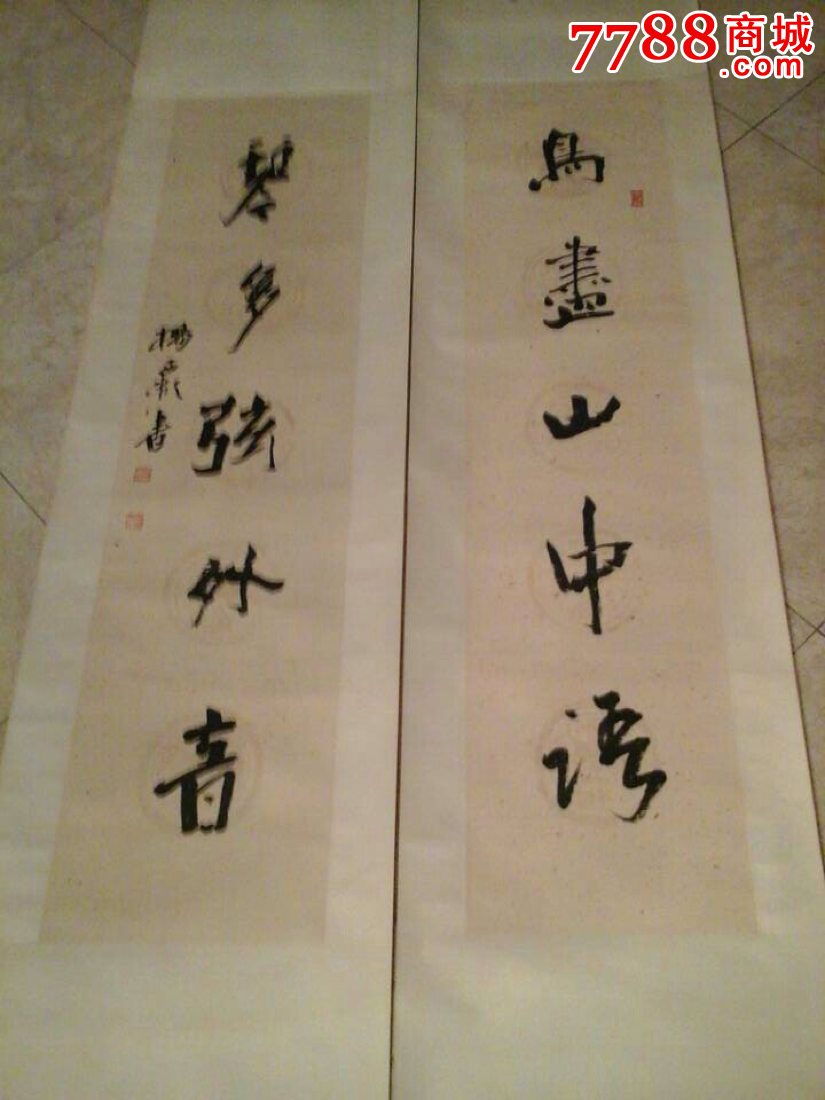 7788商城
.com
鳥盡山中語
琴多弦外音
書